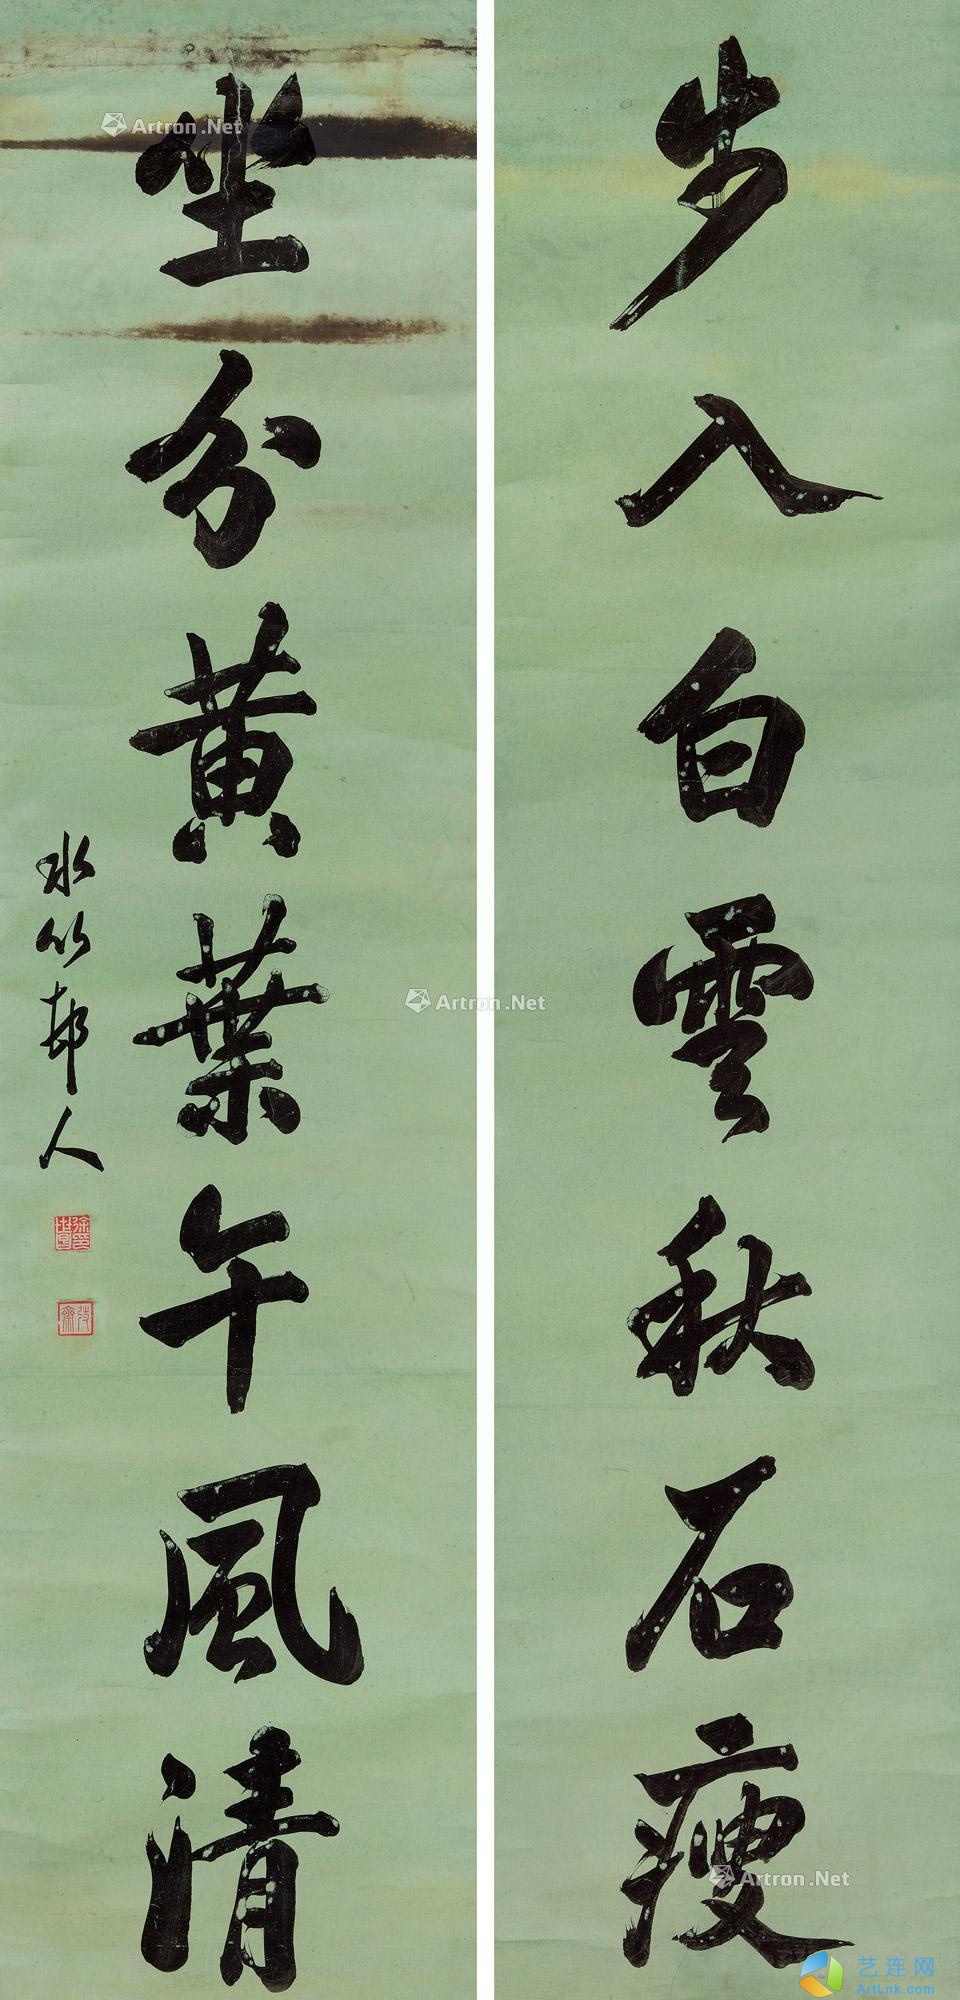 步入白雲秋石瘦
坐分黄葉午風清
水竹邨人
徐世昌印
弢齋
Artron.Net
Artron.Net
Artron.Net
艺连网
ArtLnk.com